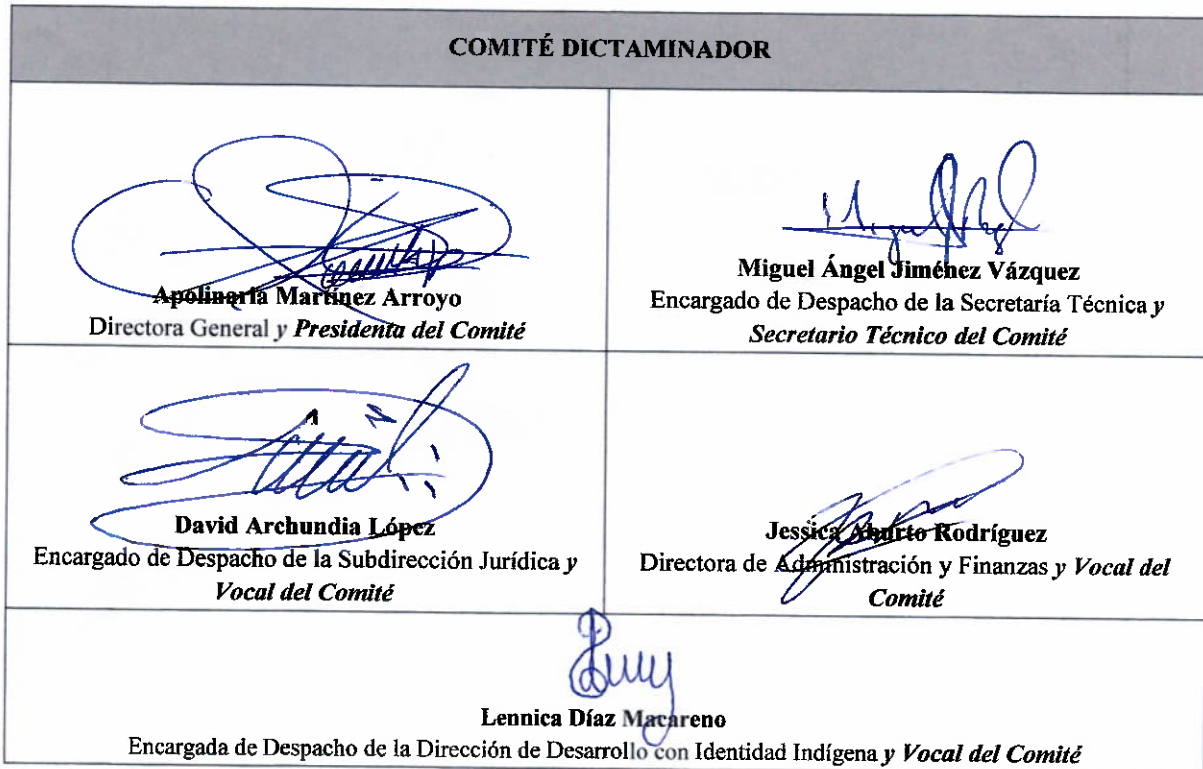 COMITÉ DICTAMINADOR
Apolinaria Martínez Arroyo
Directora General y Presidenta del Comité
Miguel Ángel Jiménez Vázquez
Encargado de Despacho de la Secretaría Técnica y
Secretario Técnico del Comité
David Archundia López
Encargado de Despacho de la Subdirección Jurídica y
Vocal del Comité
Jessica Ahurto Rodríguez
Directora de Administración y Finanzas y Vocal del
Comité
Lennica Díaz Macareno
Encargada de Despacho de la Dirección de Desarrollo con Identidad Indígena y Vocal del Comité